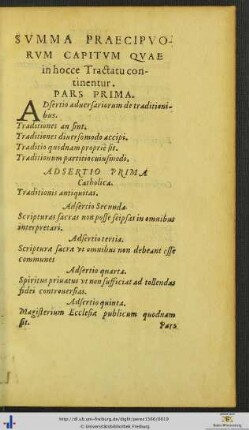 SVMMA PRAECIPVO-
RVM CAPITVM QVAE
in hocce Tractatu con-
tinentur.
PARS PRIMA.
ADsertio aduersariorum de traditioni-
bus.
Traditiones an sint.
Traditiones diuersimodo accipi.
Traditio quidnam propriè sit.
Traditionum partitio cuiusmodi.
ADSERTIO PRIMA
Catholica.
Traditionis antiquitas.
Adsertio Secunda
Scripturas sacras non posse seipsas in omnibus
interpretari.
Adsertio tertia.
Scriptura sacra vt omnibus non debeant esse
communes
Adsertio quarta.
Spiritus priuatus vt non sufficiat ad tollendas
fidei controuersias.
Adsertio quinta.
Magisterium Ecclesiæ publicum quodnam
sit.
Pars
http://dl.ub.uni-freiburg.de/diglit/perez1556/0019
© Universitätsbibliothek Freiburg